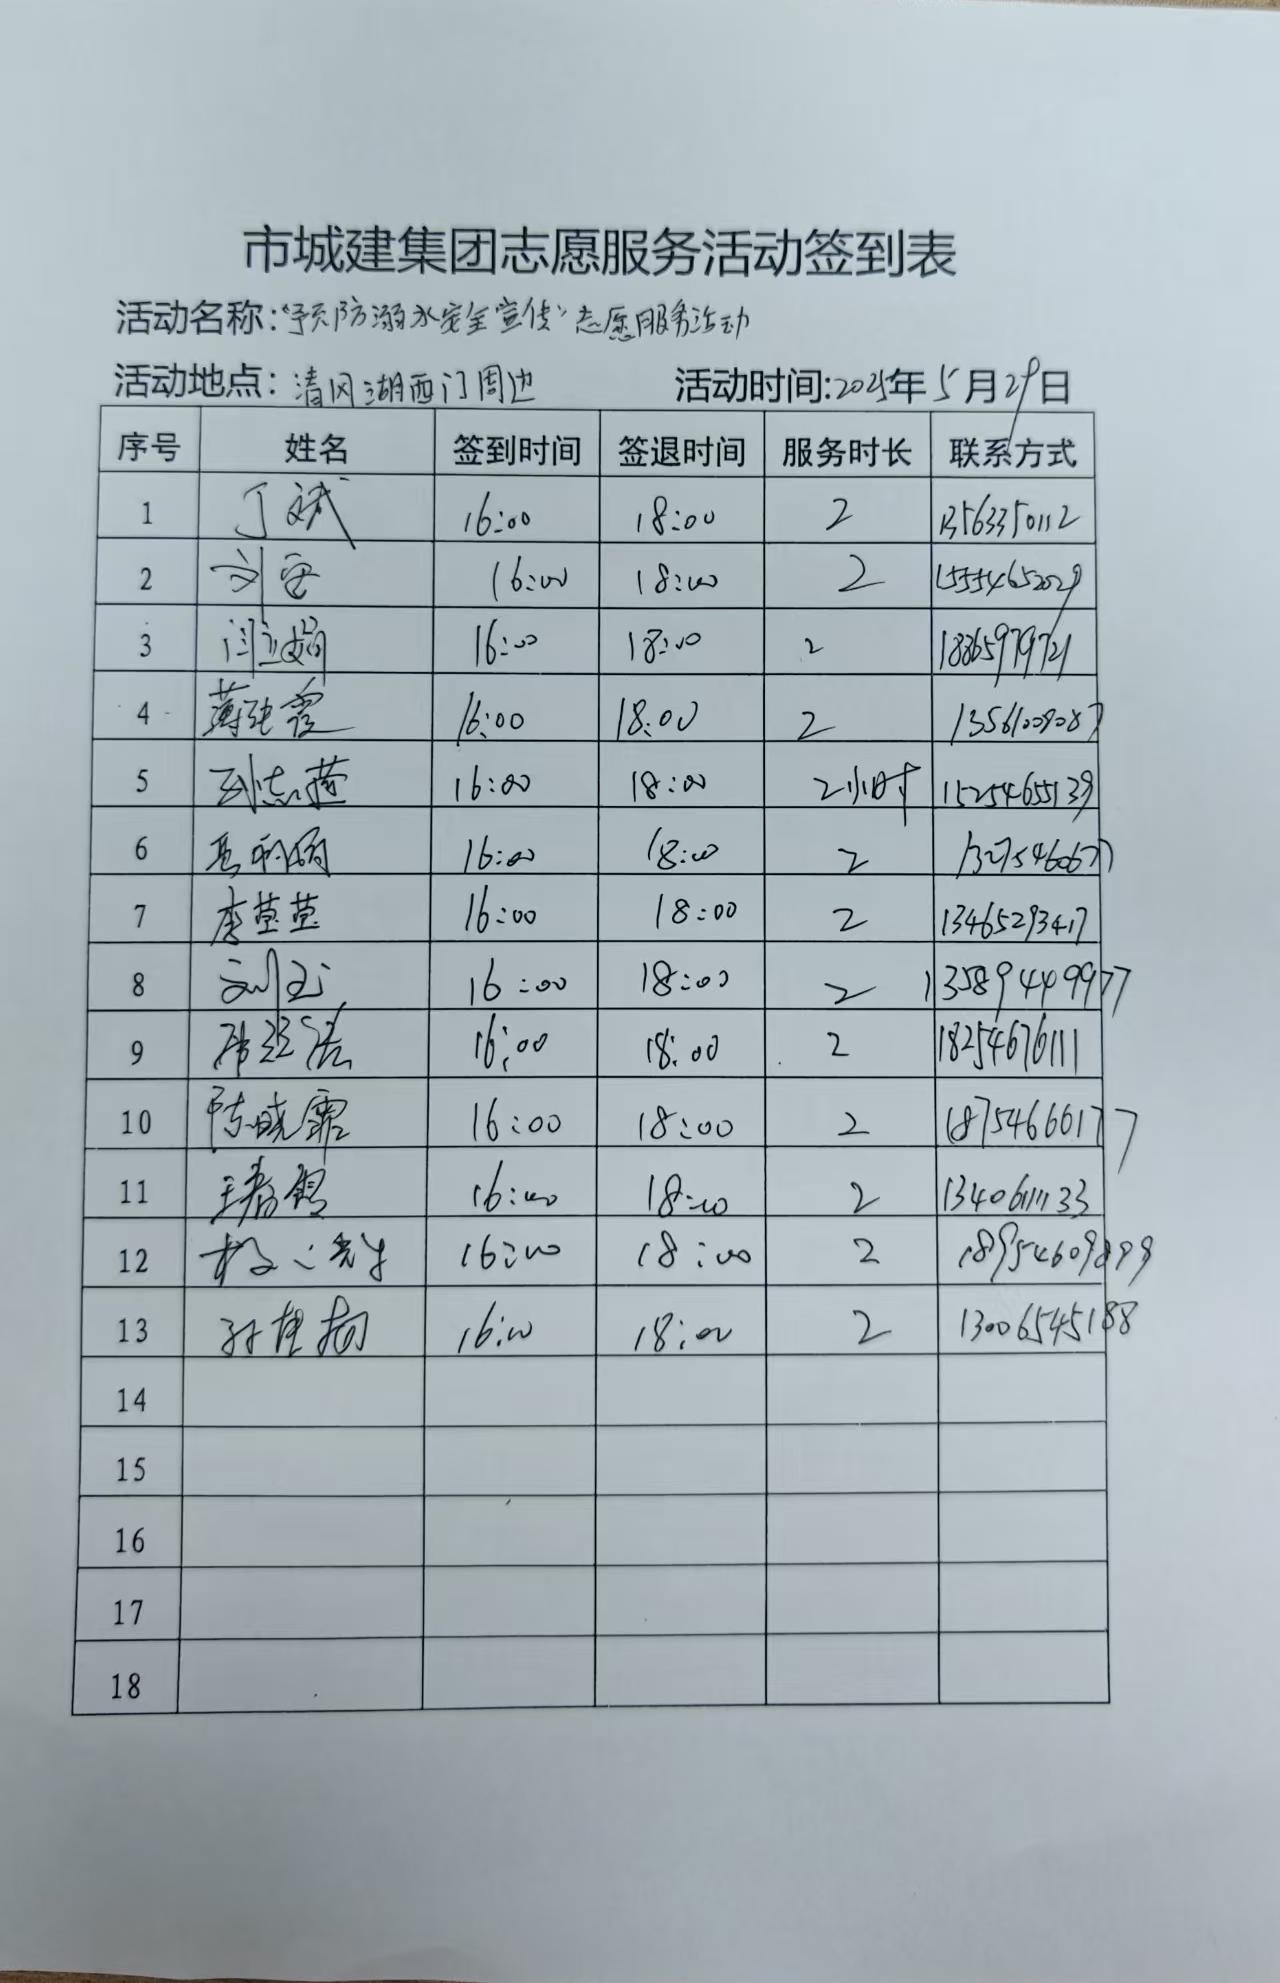 市城建集团志愿服务活动签到表
活动名称:“预防溺水安全宣传”志愿服务活动
活动地点: 清风湖西门周边 活动时间:2025年5月29日
序号 姓名 签到时间 签退时间 服务时长 联系方式
1 丁斌 16:00 18:00 2 13563350112
2 刘 16:00 18:00 2 15554652029
3 闫 娟 16:00 18:00 2 18865979721
4 薄艳霞 16:00 18:00 2 13561009087
5 刘志莲 16:00 18:00 2小时 15254655139
6 16:00 18:00 2 13275460677
7 李莹莹 16:00 18:00 2 13465293417
8 刘玉 16:00 18:00 2 13589449977
9 16:00 18:00 2 18254676111
10 陈晓霏 16:00 18:00 2 18754666177
11 王 16:00 18:00 2 13406111133
12 16:00 18:00 2 18954609899
13 孙 16:00 18:00 2 13006545188
14
15
16
17
18